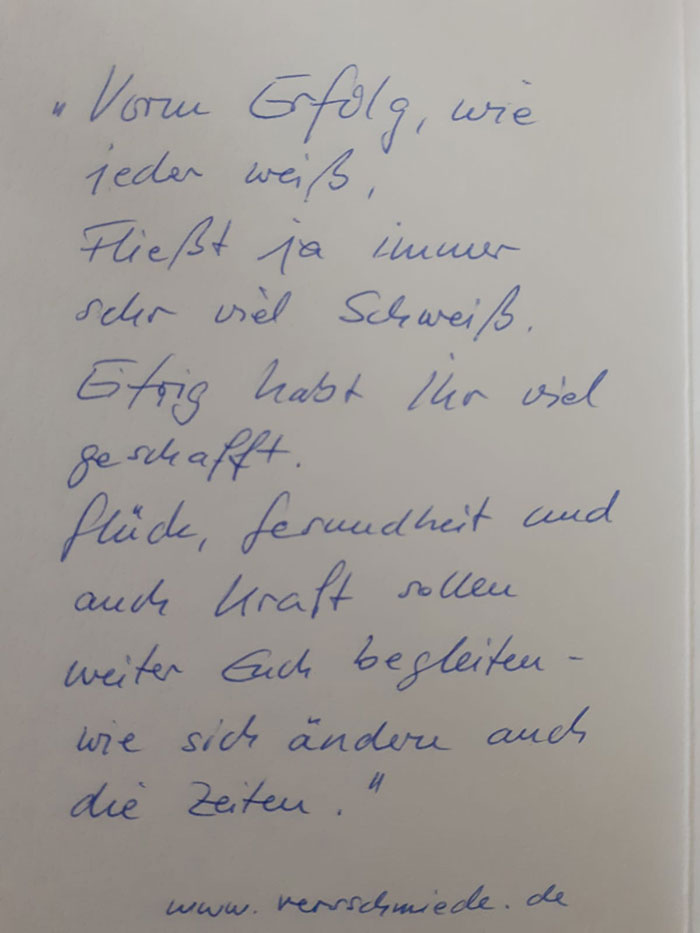 "Vorm Erfolg, wie
jeder weiß,
Fließt ja immer
sehr viel Schweiß.
Eifrig habt Ihr viel
geschafft.
Glück, Gesundheit und
auch Kraft sollen
weiter Euch begleiten -
wie sich ändern auch
die Zeiten."
www.versschmiede.de